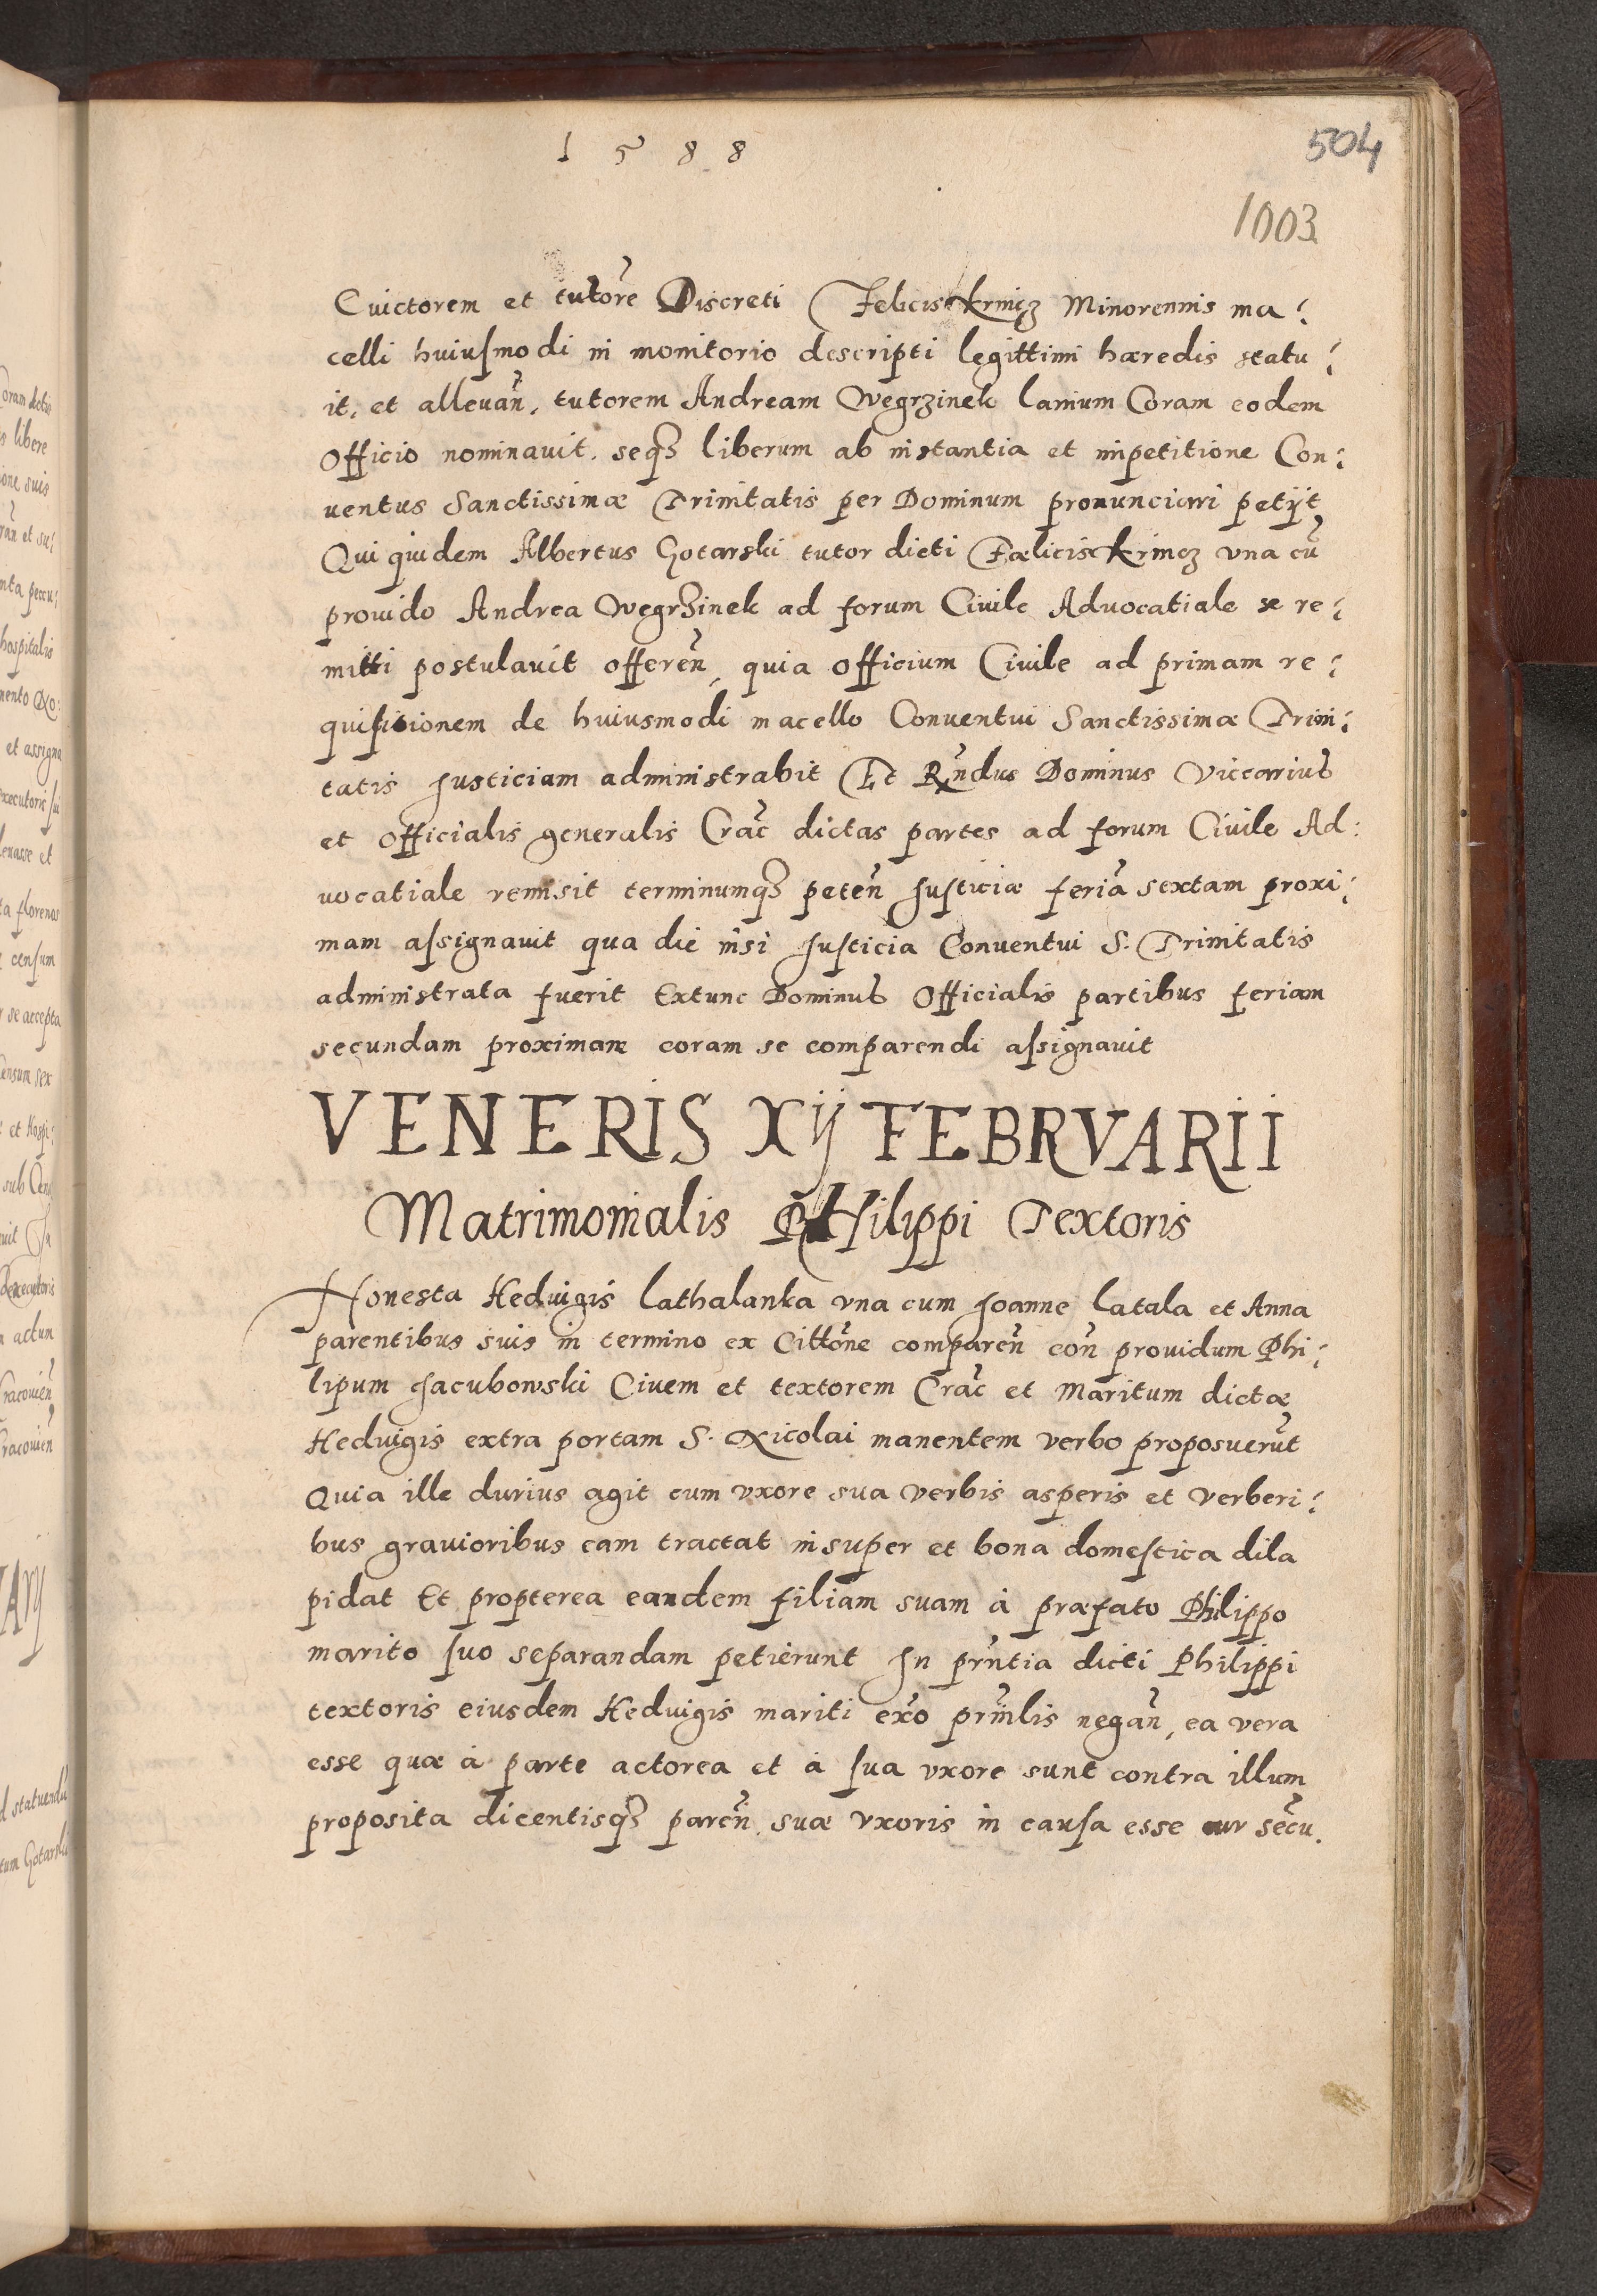 1588
504
1003
Euictorem et tutore͂ Discreti Felicis Krincz Minorennis ma:
celli huiuſmodi in monitorio descripti legittimi hæredis statu:
it, et alleuan͂, tutorem Andream Wegrzinek lanium Coram eodem
Officio nominauit. seqꝫ liberum ab instantia et impetitione Con:
uentus Sanctissimæ Trinitatis per Dominum pronunciari petijt
Qui quidem Albertus Gotarski tutor dicti Fælicis Krincz vna cu͂
prouido Andrea Wegrzinek ad forum Ciuile Aduocatiale se re:
mitti postulauit offeren͂, quia officium Ciuile ad primam re:
quiſitionem de huiusmodi macello Conuentui Sanctissimæ Trini:
tatis Justiciam administrabit Et Rn͂dus Dominus Vicarius
et Officialis generalis Crac͂ dictas partes ad forum Ciuile Ad:
uocatiale remisit terminumqꝫ peten͂ Juſticiæ feria͂ sextam proxi:
mam aſsignauit qua die nisi Juſticia Conuentui S. Trinitatis
administrata fuerit Extunc Dominus Officialis partibus feriam
secundam proximam coram se comparendi aſsignauit
VENERIS XIJ FEBRVARII
Matrimonialis PHilippi Textoris
Honesta Heduigis Lathalanka vna cum Joanne Latala et Anna
parentibus suis in termino ex Citto͂ne comparen͂ con͂ prouidum Phi:
lipum Jacubowski Ciuem et textorem Crac͂ et Maritum dictæ
Heduigis extra portam S. Nicolai manentem verbo proposueru͂t
Quia ille durius agit cum vxore sua verbis asperis et verberi:
bus grauioribus eam tractat insuper et bona domeſtica dila
pidat Et propterea eandem filiam suam à præfato Philippo
marito ſuo separandam petierunt Jn prn͂tia dicti Philippi
textoris eiusdem Heduigis mariti ex͂o prin͂lis negan͂, ea vera
esse quæ à parte actorea et à ſua vxore sunt contra illum
proposita dicentisqꝫ paren͂. suæ vxoris in cauſa esse cur sec͂u.